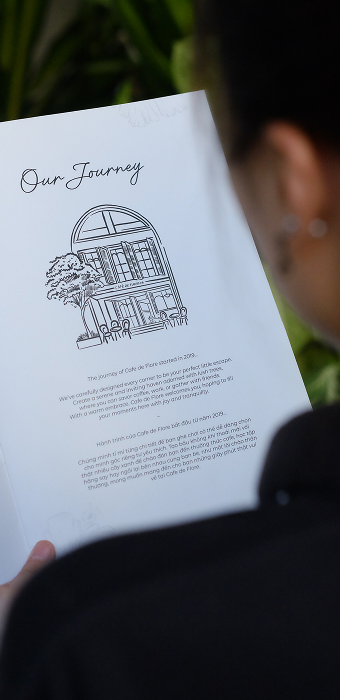 Our Journey
CAFE DE FLORE
The journey of Cafe de Flore started in 2019...
We've carefully designed every corner to be your perfect little escape.
Create a serene and inviting haven adorned with lush trees,
where you can savor coffee, work, or gather with friends.
With a warm embrace, Cafe de Flore welcomes you, hoping to fill
your moments here with joy and tranquility.
Hành trình của Cafe de Flore bắt đầu từ năm 2019...
Chúng mình tỉ mỉ từng chi tiết để bạn ghé chơi có thể dễ dàng chọn
cho mình góc riêng tư yêu thích. Tạo bầu không khí thoải mái với
thật nhiều cây xanh để chào đón bạn đến thưởng thức cafe, học tập
hăng say hay ngồi lại bên nhau cùng bạn bè, như một lời chào thân
thương, mong muốn mang đến cho bạn những giây phút thật vui
vẻ tại Cafe de Flore